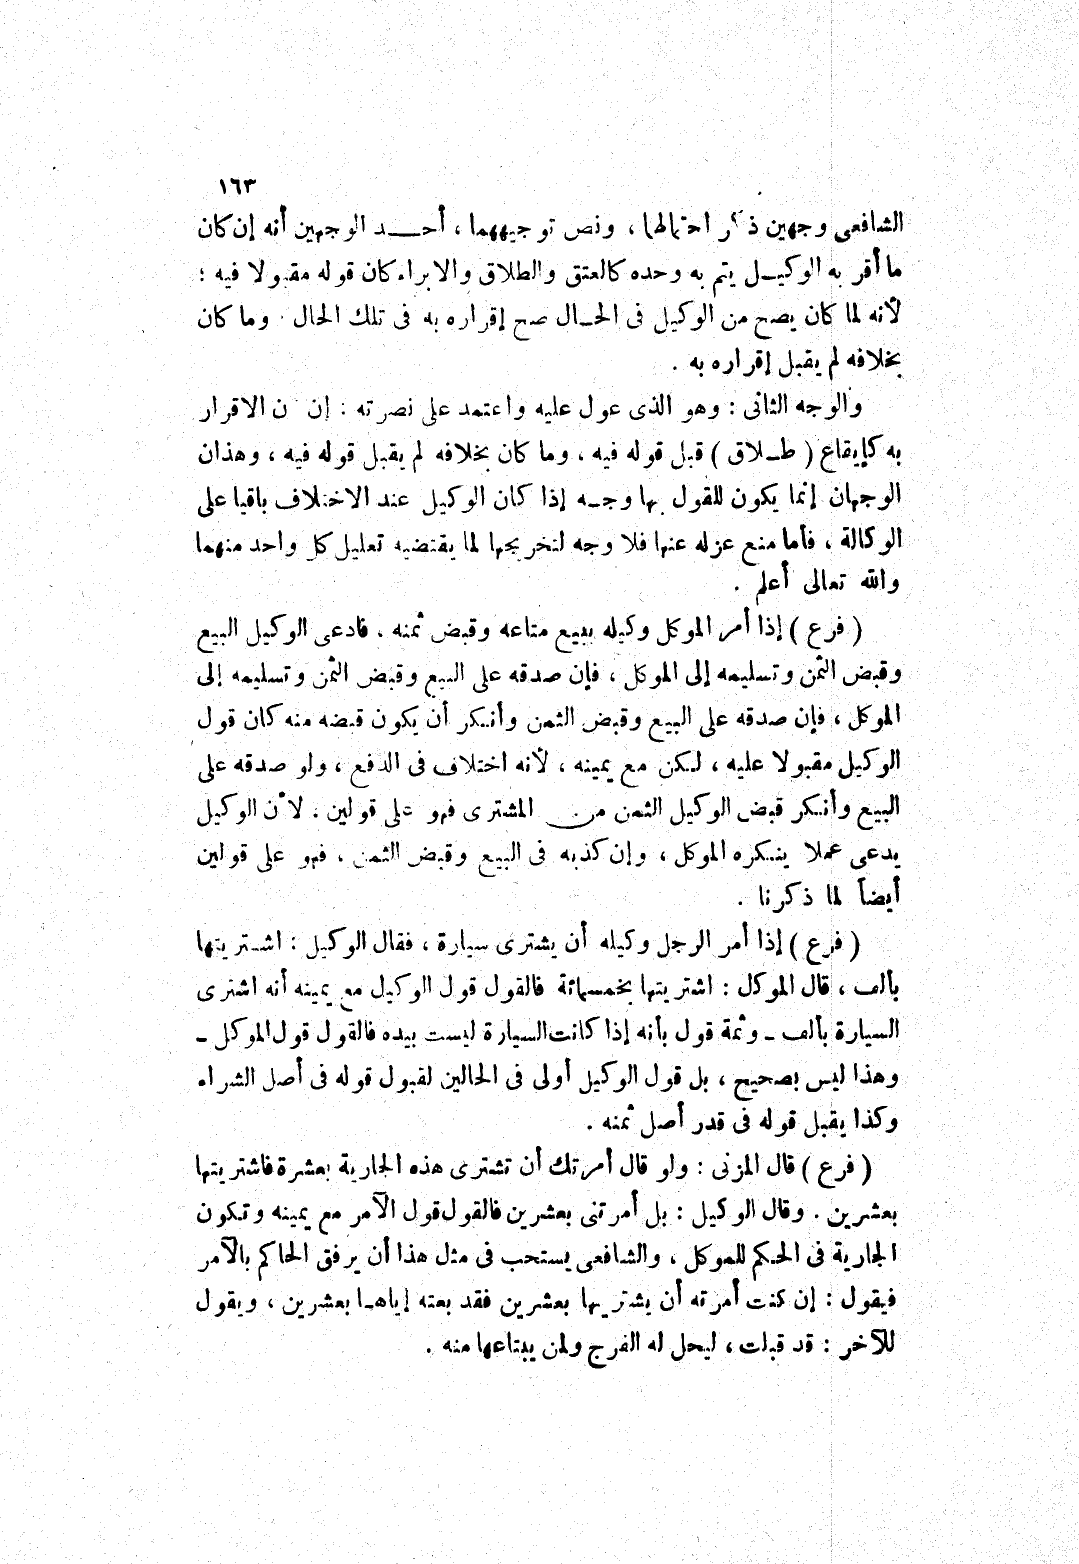 ١٦٣
الشافعى وجهين ذكر احتمالها ، ونص توجيههما ، أحــد الوجهين أنه إن كان
ما أقر به الوكيــل يتم به وحده كالعتق والطلاق والابراء كان قوله مقبولا فيه ؛
لأنه لما كان يصح من الوكيل فى الحــال صح إقراره به فى تلك الحال . وما كان
بخلافه لم يقبل إقراره به .
والوجه الثانى : وهو الذى عول عليه واعتمد على نصرته : إن ن الاقرار
به كإيقاع ( طــلاق ) قبل قوله فيه ، وما كان بخلافه لم يقبل قوله فيه ، وهذان
الوجهان إنما يكون للقول بها وجــه إذا كان الوكيل عند الاختلاف باقيا على
الوكالة ، فأما منع عزله عنها فلا وجه لتخريجها لما يقتضيه تعليل كل واحد منهما
والله تعالى أعلم .
( فرع ) إذا أمر الموكل وكيله ببيع متاعه وقبض ثمنه ، فادعى الوكيل البيع
وقبض الثمن وتسليمه إلى الموكل ، فإن صدقه على البيع وقبض الثمن وتسليمه إلى
الموكل ، فإن صدقه على البيع وقبض الثمن وأنكر أن يكون قبضه منه كان قول
الوكيل مقبولا عليه ، لكن مع يمينه ، لأنه اختلاف فى الدفع ، ولو صدقه على
البيع وأنكر قبض الوكيل الثمن من المشترى فهو على قولين . لأن الوكيل
يدعى عملا ينكره الموكل ، وإن كذبه فى البيع وقبض الثمن ، فهو على قولين
أيضاً لما ذكرنا .
( فرع ) إذا أمر الرجل وكيله أن يشترى سيارة ، فقال الوكيل : اشــتريتها
بألف ، قال الموكل : اشتريتها بخمسمائة فالقول قول الوكيل مع يمينه أنه اشترى
السيارة بألف ـ وثمة قول بأنه إذا كانت السيارة ليست بيده فالقول قول الموكل ـ
وهذا ليس بصحيح ، بل قول الوكيل أولى فى الحالين لقبول قوله فى أصل الشراء
وكذا يقبل قوله فى قدر أصل ثمنه .
( فرع ) قال المزنى : ولو قال أمرتك أن تشترى هذه الجارية بعشرة فاشتريتها
بعشرين . وقال الوكيل : بل أمرتنى بعشرين فالقول قول الآمر مع يمينه وتكون
الجارية فى الحكم للموكل ، والشافعى يستحب فى مثل هذا أن يرفق الحاكم بالآمر
فيقول : إن كنت أمرته أن يشتريها بعشرين فقد بعته إياهــا بعشرين ، ويقول
للآخر : قد قبلت ، ليحل له الفرج ولمن يبتاعها منه .